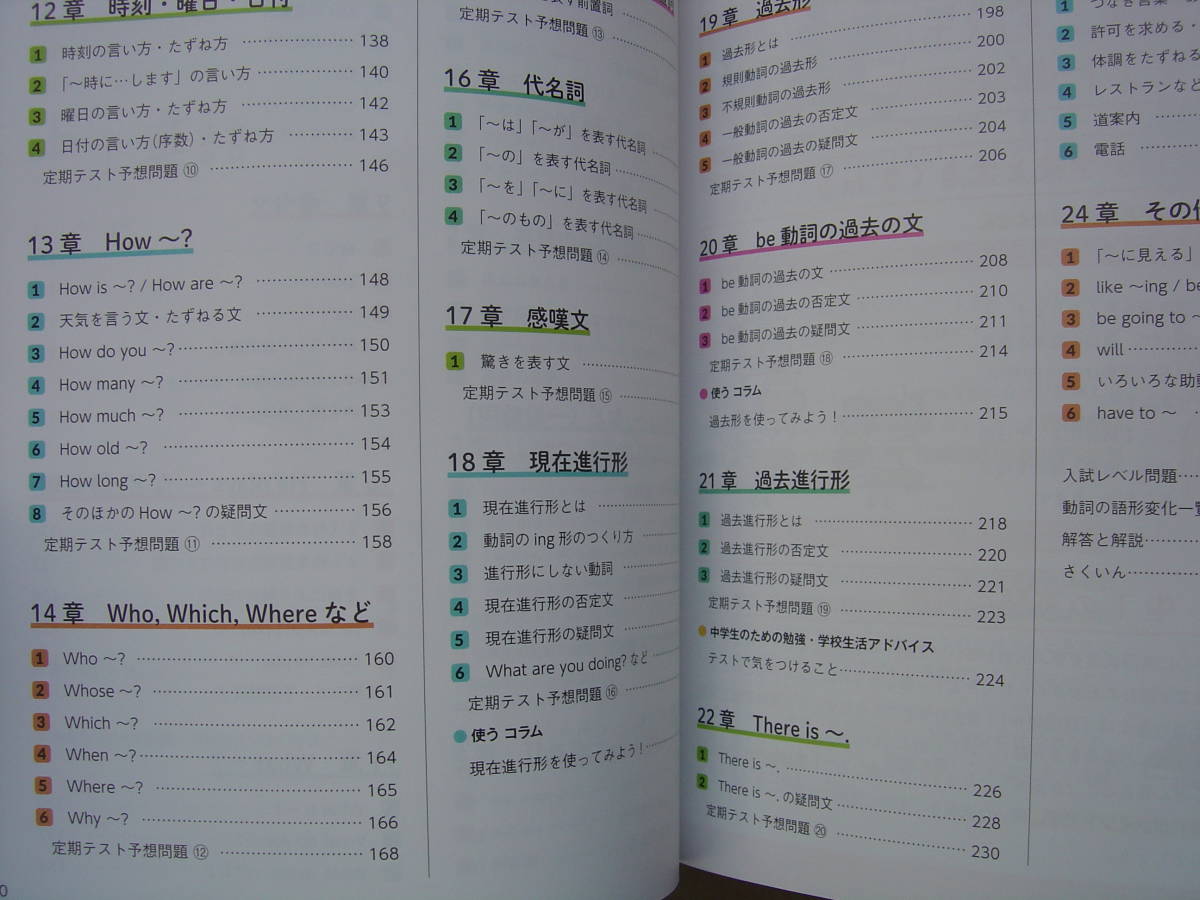 12章 時刻・曜日・日付
1 時刻の言い方・たずね方 138
2 「〜時に…します」の言い方 140
3 曜日の言い方・たずね方 142
4 日付の言い方(序数)・たずね方 143
定期テスト予想問題 ⑩ 146
13章 How 〜?
1 How is 〜? / How are 〜? 148
2 天気を言う文・たずねる文 149
3 How do you 〜? 150
4 How many 〜? 151
5 How much 〜? 153
6 How old 〜? 154
7 How long 〜? 155
8 そのほかの How 〜? の疑問文 156
定期テスト予想問題 ⑪ 158
14章 Who, Which, Where など
1 Who 〜? 160
2 Whose 〜? 161
3 Which 〜? 162
4 When 〜? 164
5 Where 〜? 165
6 Why 〜? 166
定期テスト予想問題 ⑫ 168
表す前置詞
定期テスト予想問題 ⑬
16章 代名詞
1 「〜は」「〜が」を表す代名詞
2 「〜の」を表す代名詞
3 「〜を」「〜に」を表す代名詞
4 「〜のもの」を表す代名詞
定期テスト予想問題 ⑭
17章 感嘆文
1 驚きを表す文
定期テスト予想問題 ⑮
18章 現在進行形
1 現在進行形とは
2 動詞の ing 形のつくり方
3 進行形にしない動詞
4 現在進行形の否定文
5 現在進行形の疑問文
6 What are you doing? など
定期テスト予想問題 ⑯
使う コラム
現在進行形を使ってみよう!
19章 過去形
1 過去形とは 198
2 規則動詞の過去形 200
3 不規則動詞の過去形 202
4 一般動詞の過去の否定文 203
5 一般動詞の過去の疑問文 204
定期テスト予想問題 ⑰ 206
20章 be 動詞の過去の文
1 be 動詞の過去の文 208
2 be 動詞の過去の否定文 210
3 be 動詞の過去の疑問文 211
定期テスト予想問題 ⑱ 214
使う コラム
過去形を使ってみよう! 215
21章 過去進行形
1 過去進行形とは 218
2 過去進行形の否定文 220
3 過去進行形の疑問文 221
定期テスト予想問題 ⑲ 223
中学生のための勉強・学校生活アドバイス
テストで気をつけること 224
22章 There is 〜.
1 There is 〜. 226
2 There is 〜. の疑問文 228
定期テスト予想問題 ⑳ 230
1 つなぎ言葉
2 許可を求める・
3 体調をたずねる
4 レストランなど
5 道案内
6 電話
24章 その他
1 「〜に見える」
2 like 〜ing / be
3 be going to 〜
4 will
5 いろいろな助動
6 have to 〜
入試レベル問題
動詞の語形変化一覧
解答と解説
さくいん